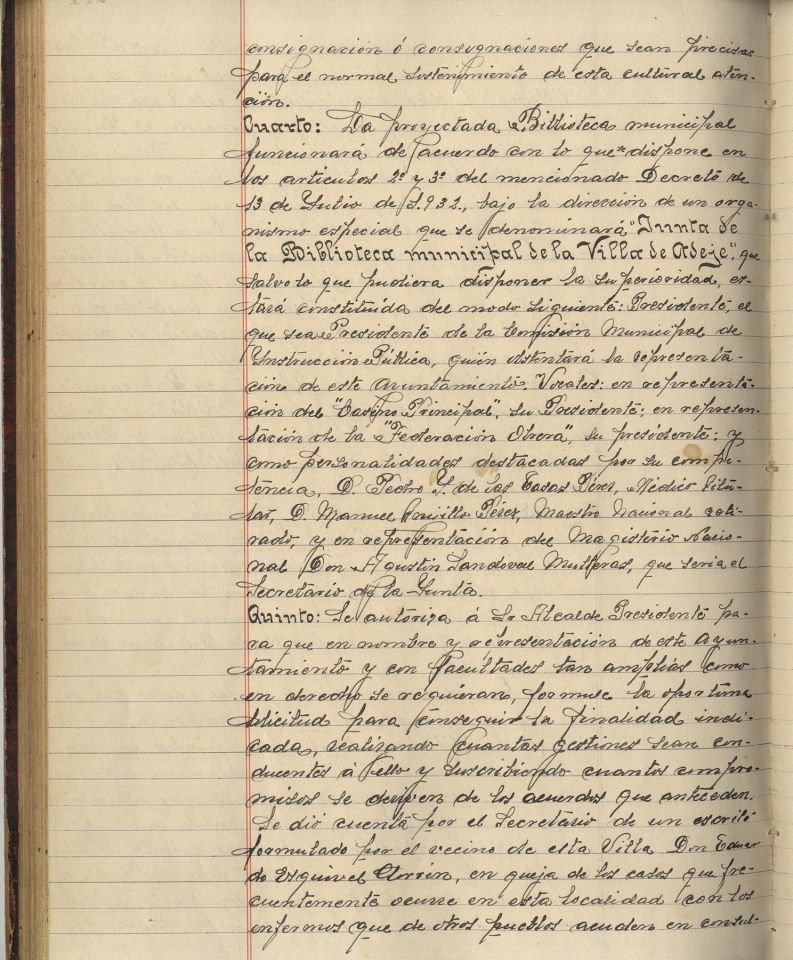 consignación ó consignaciones que sean precisas
para el normal sostenimiento de esta cultural aten-
ción.
Cuarto: La proyectada Biblioteca municipal
funcionará de acuerdo con lo que dispone en
los artículos 2º y 3º del mencionado Decreto de
13 de Julio de 1.932, bajo la dirección de un orga-
nismo especial que se denominará "Junta de
la Biblioteca municipal de la Villa de Adeje", que
salvo lo que pudiera disponer la superioridad, es-
tará constituída del modo siguiente: Presidente, el
que sea Presidente de la Comisión Municipal de
Instrucción Pública, quién ostentará la representa-
ción de este Ayuntamiento, Vocales: en representa-
ción del "Casino Principal", su Presidente; en represen-
tación de la "Federación Obrera", su presidente; y
como personalidades destacadas por su compe-
tencia, D. Pedro Y. de las Casas Pérez, Médico titu-
lar, D. Manuel Pérez, Maestro Nacional reti-
rado, y en representación del Magisterio Nacio-
nal Don Agustín Sandoval que seria el
Secretario de la Junta.
Quinto: Se autoriza á Sr. Alcalde Presidente pa-
ra que en nombre y representación de este Ayun-
tamiento y con facultades tan amplias como
en derecho se requieran, formule la oportuna
solicitud para conseguir la finalidad indi-
cada, realizando cuantas gestiones sean con-
ducentes á ello y suscribiendo cuantos compro-
misos se deriven de los acuerdos que anteceden.
Se dió cuenta por el Secretario de un escrito
formulado por el vecino de esta Villa Don Eduar
do Esquivel en queja de los casos que fre-
cuentemente ocurre en esta localidad con los
enfermos que de otros pueblos acuden en consul-